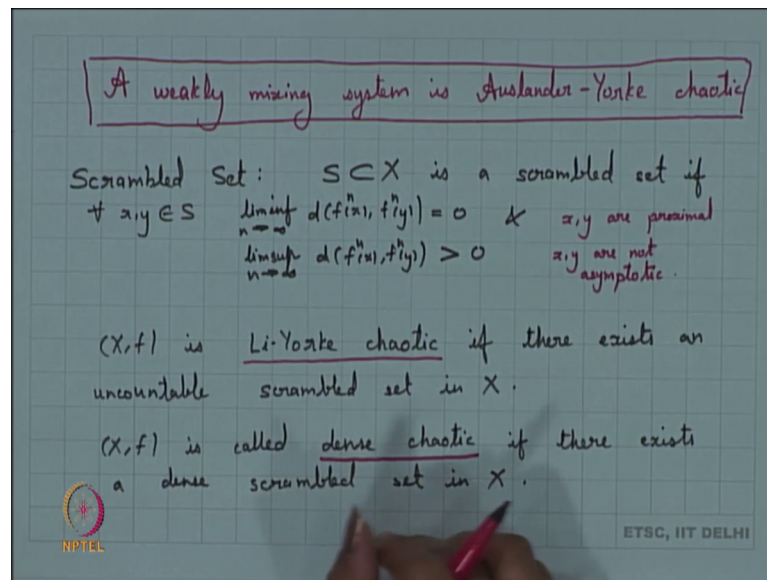 A weakly mixing system is Auslander-Yorke chaotic
Scrambled Set: S ⊂ X is a scrambled set if
∀ x,y ∈ S liminf n→∞ d(fⁿ(x), fⁿ(y)) = 0 & x,y are proximal
limsup n→∞ d(fⁿ(x), fⁿ(y)) > 0 x,y are not
asymptotic.
(X,f) is Li-Yorke chaotic if there exists an
uncountable scrambled set in X.
(X,f) is called dense chaotic if there exists
a dense scrambled set in X.
NPTEL
ETSC, IIT DELHI